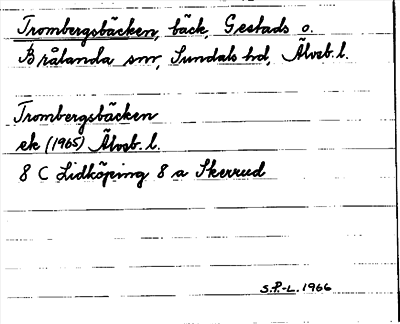 Trombergsbäcken, bäck, Gestads o.
Brålanda snr, Sundals hd, Älvsb. l.
Trombergsbäcken
ek (1965) Älvsb. l.
8 C Lidköping 8 a Skerrud
S.P.-L. 1966